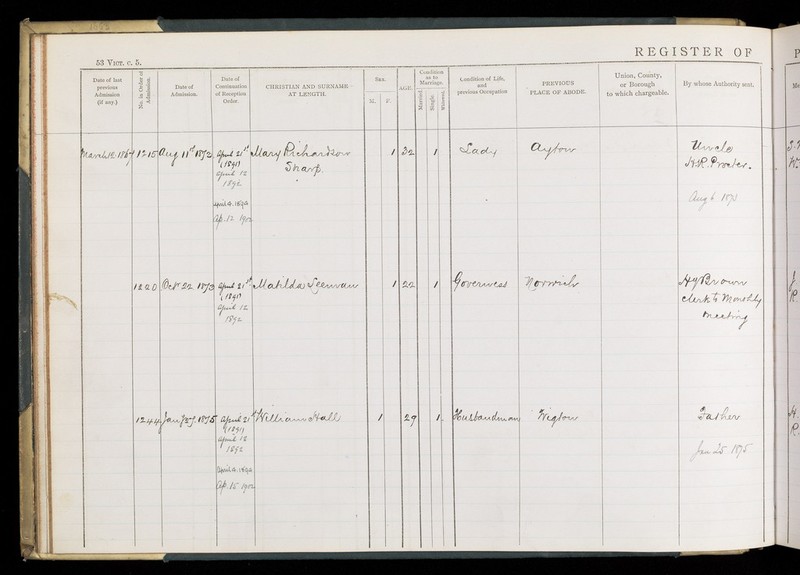 53 VICT. c. 5.
REGISTER OF
Date of last previous Admission (if any.)
No. in Order of Admission.
Date of Admission.
Date of Continuation of Reception Order.
CHRISTIAN AND SURNAME AT LENGTH.
SEX.
M. F.
AGE.
Condition as to Marriage.
Married. Single. Widowed.
Condition of Life, and previous Occupation
PREVIOUS PLACE OF ABODE.
Union, County, or Borough to which chargeable.
By whose Authority sent.
1215 Aug 11th 1873 April 21st Mary Richardson 1 32 1 Lady Ayton Uncle
(1891) Sharp. H.R. Procter.
April 12
1892
Aug 6 1873
April 12. 1892
Ap. 12 1902
1220 Octr 22 1873 April 21st Matilda 1 22 1 Governess Norwich Hy Brown
(1891) clerk to Monthly
April 12 meeting
1892
1244 Jany 27. 1875 April 21st William Hall 1 29 1 Husbandman Wigton Father
(1891)
April 12
1892
Jan 25 1875
Ap. 15 1902